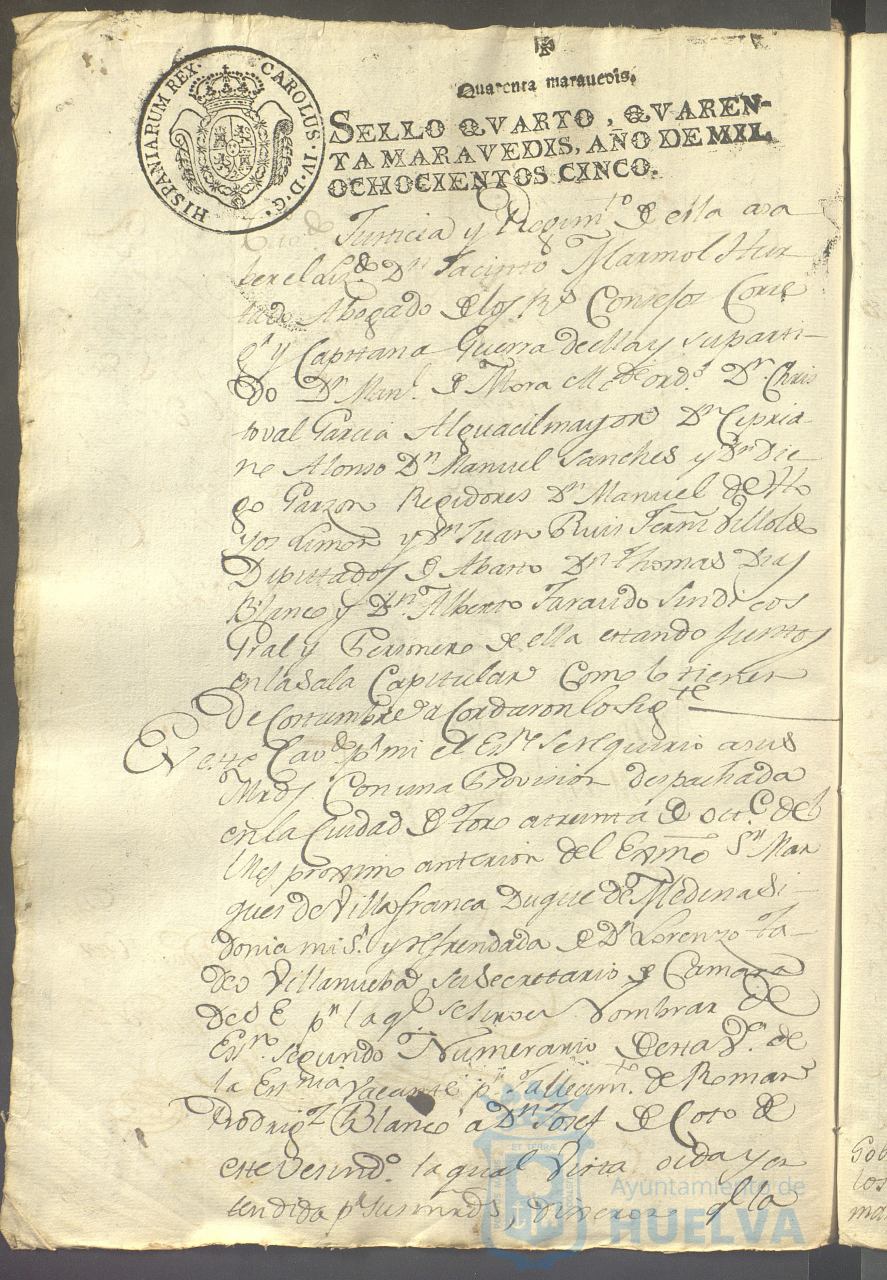 HISPANIARUM REX. CAROLUS·IV·D·G·
Quarenta maravedis.
SELLO QVARTO, QVAREN-
TA MARAVEDIS, AÑO DE MIL
OCHOCIENTOS CINCO.
Justicia y Regim.to de ella asa
ber el Liz.do Dn Jacinto Marmol Hur
tado Abogado de los R.s Consejos Corre
g.r y Capitan a Guerra de ella y su parti-
do Dn Man.l de Mora Alc.de ord.o Dn Chris
toval Garcia Alguacil mayor Dn Cipria-
no Alonso Dn Manuel Sanches y Dn Die
go Garzon Regidores Dn Manuel de Ho
yos Limon y Dn Juan Ruis Fern.z Villolde
Diputados de Abasto Dn Thomas Dias
Blanco y Dn Alberto Faraudo Sindicos
Gral y Personero de ella estando juntos
en la Sala Capitular Como lo tienen
De Costumbre aCordaron lo sig.te
En este Cav.do p.r mi el Es.no se requirio a sus
Mrds Con una Provision despachada
en la Ciudad de Toro a treinta de oct.e del
Mes proximo anterior del Exmo S.or Mar
ques de Villafranca Duque de Medina Si-
donia mi S.r y refrendada de Dn Lorenzo Ta-
deo Villanueba su Secrettario de Camara
de S E p.r la q.l se sirve Nombrar de
Es.no segundo Numerario de esta V.a de
la Es.nia vacante p.r fallecim.to de Roman
Rodrig.z Blanco a Dn Josef de Coto de
este Vesind.o la qual Vista oida y en
tendida p.r sus mrds, dixeron q.e la
Gob
los
ma
Ayuntamiento de
HUELVA